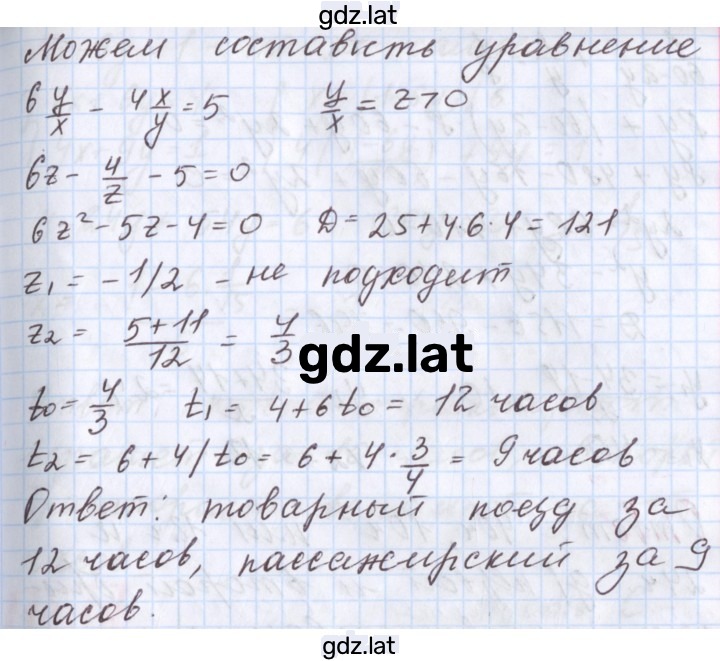 gdz.lat
Можем составить уравнение
6 y/x - 4 x/y = 5 y/x = z > 0
6z - 4/z - 5 = 0
6z² - 5z - 4 = 0 D = 25 + 4·6·4 = 121
z₁ = -1/2 - не подходит
z₂ = (5+11)/12 = 4/3
gdz.lat
t₀ = 4/3 t₁ = 4 + 6t₀ = 12 часов
t₂ = 6 + 4/t₀ = 6 + 4·3/4 = 9 часов
Ответ: товарный поезд за
12 часов, пассажирский за 9
часов.
gdz.lat